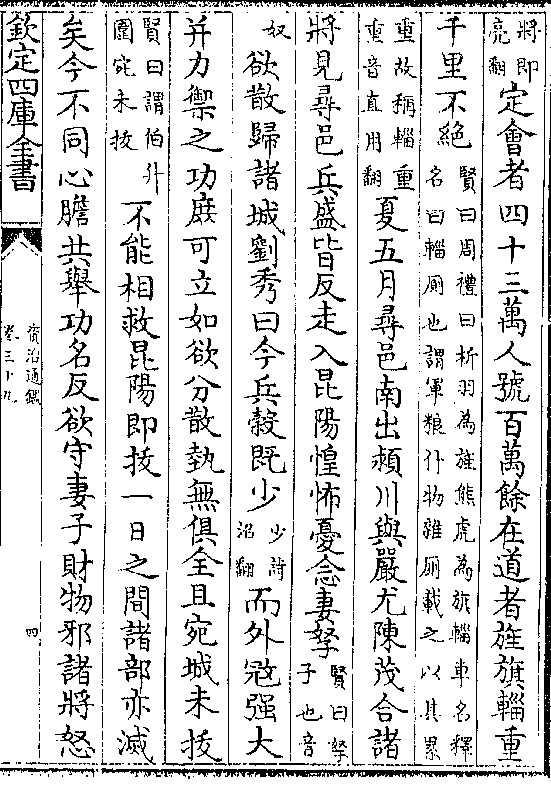 將即亮翻定會者四十三萬人號百萬餘在道者旌旗輜重
千里不絶賢曰周禮曰析羽為旌熊虎為旗輜車名釋名曰輜厠也謂軍糧什物雜厠載之以其累
重故稱輜重重音直用翻夏五月尋邑南出潁川與嚴尤陳茂合諸
將見尋邑兵盛皆反走入昆陽惶怖憂念妻孥賢曰孥子也音
奴欲散歸諸城劉秀曰今兵穀既少少詩沼翻而外冦强大
并力禦之功庶可立如欲分散埶無俱全且宛城未拔
賢曰謂伯升圍宛未拔不能相救昆陽即拔一日之間諸部亦滅
矣今不同心膽共舉功名反欲守妻子財物邪諸將怒
欽定四庫全書
資治通鑑
卷三十九
四